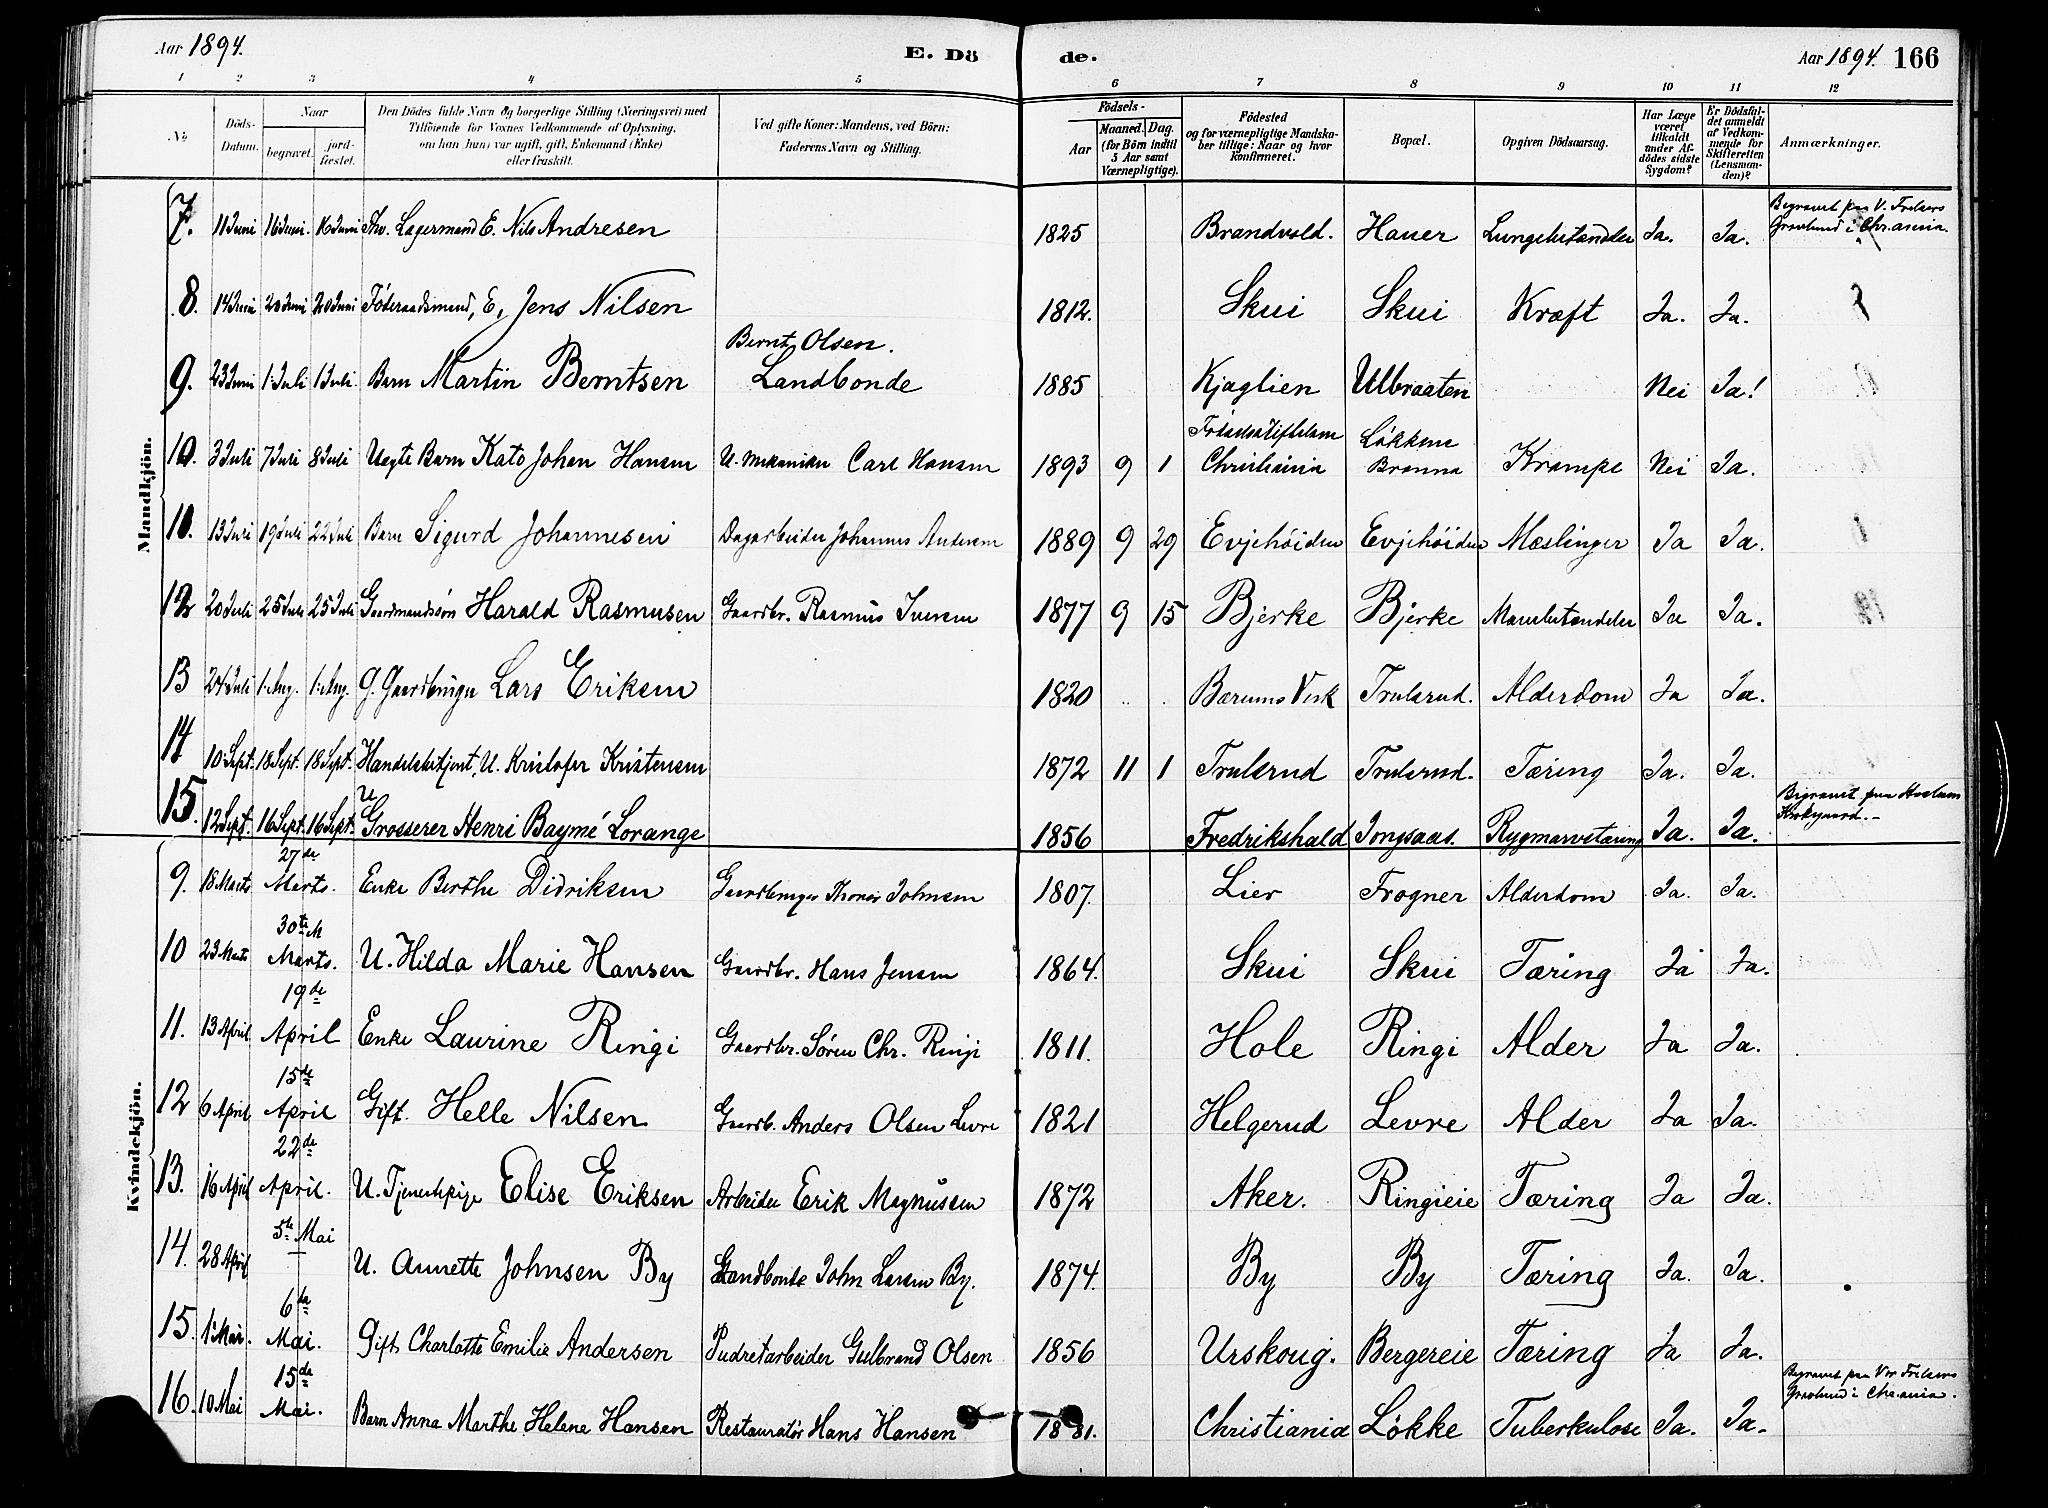 Aar 1894. E. Dö de. Aar 1894. 166
1 2 3 4 5 6 7 8 9 10 11 12
No. Döds-Datum. Naar begravet. jordfæstet. Den Dödes fulde Navn og borgerlige Stilling (Næringsvei) med Tilföiende for Voxnes Vedkommende af Oplysning, om han (hun) var ugift, gift, Enkemand (Enke) eller fraskilt. Ved gifte Koner: Mandens, ved Börn: Faderens Navn og Stilling. Födsels- Aar Maaned. Dag. (for Börn indtil 5 Aar samt Værnepligtige). Födested og for værnepligtige Mandskaber tillige: Naar og hvor konfirmeret. Bopæl. Opgiven Dödsaarsag. Har Læge været tilkaldt under Afdödes sidste Sygdom? Er Dödsfaldet anmeldt af Vedkommende for Skifteretten (Lensmanden)? Anmærkninger.
Mandkjön.
7. 11 Juni 16 Juni. 16 Juni Lagermand E. Nils Andresen 1825 Brandvold. Hauer Ja. Ja. Begravet paa V. Frelsers Gravlund i Chr.ania.
8. 14 Juni 20 Juni 20 Juni Föderaadsmand, E, Jens Nilsen 1812. Skui Skui Kræft Ja. Ja.
9. 23 Juni 1. Juli 1 Juli. Barn Martin Berntsen Bernt Olsen. Landbonde 1885 Kjaglien Ulbraaten Nei Ja!
10. 3 Juli 7 Juli 8 Juli Uegte Barn Kato Johan Hansen U. Mekaniker Carl Hansen 1893 9 1 Christiania Løkkene Krampe Nei Ja.
11. 13 Juli 19 Juli 22 Juli Barn Sigurd Johannesen Dagarbeider Johannes Andersen 1889 9 29 Evjehöiden Evjehöiden Mæslinger Ja Ja.
12 20 Juli 25 Juli 25 Juli Gaardmandssön Harald Rasmusen Gaardbr. Rasmus Iversen 1877 9 15 Bjerke Bjerke Ja Ja.
13 24 Juli 1. Aug. 1. Aug. G. Gaardbruger Lars Eriksen 1820 Bærums Verk Trulsrud. Alderdom Ja Ja.
14 10 Sept. 18 Sept. 18 Sept. Handelsbetjent, U. Kristofer Kristensen 1872 11 1 Trulsrud Trulsrud. Tæring Ja. Ja.
15. 12 Sept. 16 Sept. 16 Sept. U Grosserer Henri Baymé Lorange 1856 Fredrikshald Jongsaas. Rygmarvstæring Ja. Ja. Begravet paa Haslum Kirkgaard.-
Kvindekjön.
9. 18 Marts 27de Marts. Enke Berthe Didriksen Gaardbruger Thomas Johnsen 1807. Lier Frogner Alderdom Ja. Ja.
10 23 Marts 30te M Marts. U. Hilda Marie Hansen Gaardbr. Hans Jensen 1864. Skui Skui Tæring Ja Ja.
11. 13 April 19de April Enke Laurine Ringi Gaardbr. Sören Chr. Ringi 1811. Hole Ringi Alder Ja Ja.
12 6 April 15de April Gift. Helle Nilsen Gaardb. Anders Olsen Levre 1821 Helgerud Levre Alder Ja Ja.
13. 16 April 22de April. U. Tjenestepige Elise Eriksen Arbeider Erik Magnusen 1872 Aker. Ringieie Tæring Ja Ja.
14. 28 April 5te Mai U. Annette Johnsen By Landbonde John Larsen By. 1874. By By Tæring Ja. Ja.
15. 1ste Mai. 6de Mai. Gift Charlotte Emilie Andersen Pudretarbeider Gulbrand Olsen 1856 Urskoug. Bergereie Tæring Ja Ja.
16. 10 Mai 15de Mai. Barn Anna Marthe Helene Hansen Restauratör Hans Hansen 1881. Christiania Løkke Tuberkulose Ja. Ja. Begravet paa Vor Frelsers Gravlund i Chr.ania.